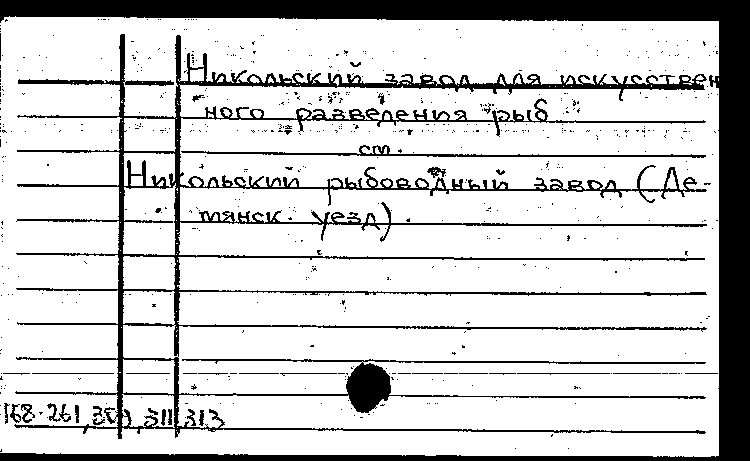 Никольский завод для искусствен
ного разведения рыб
см.
Никольский рыбоводный завод (Де-
мянск. уезд).
168.261, 309, 311, 313